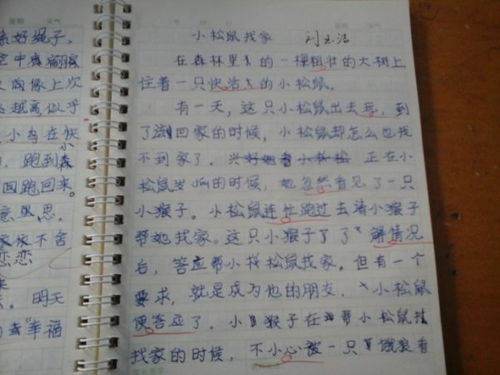 小松鼠找家 刘玉洁
在森林里的一棵粗壮的大树上
住着一只快活的小松鼠。
有一天，这只小松鼠出去玩，到
了回家的时候，小松鼠却怎么也找
不到家了。正在小
松鼠的时候，她忽然看见了一只
小猴子。小松鼠连忙跑过去请小猴子
帮她找家。这只小猴子了了解情况
后，答应帮小松鼠找家。但有一个
要求，就是成为他的朋友，小松鼠
便答应了。小猴子在帮小松鼠找
找家的时候，不小心被一只饿狼看
亲好绳子。
空中
次
越高似乎
小鸟在
跑到森
回跑回来。
意思。
家不舍
恋恋
明天
幸福